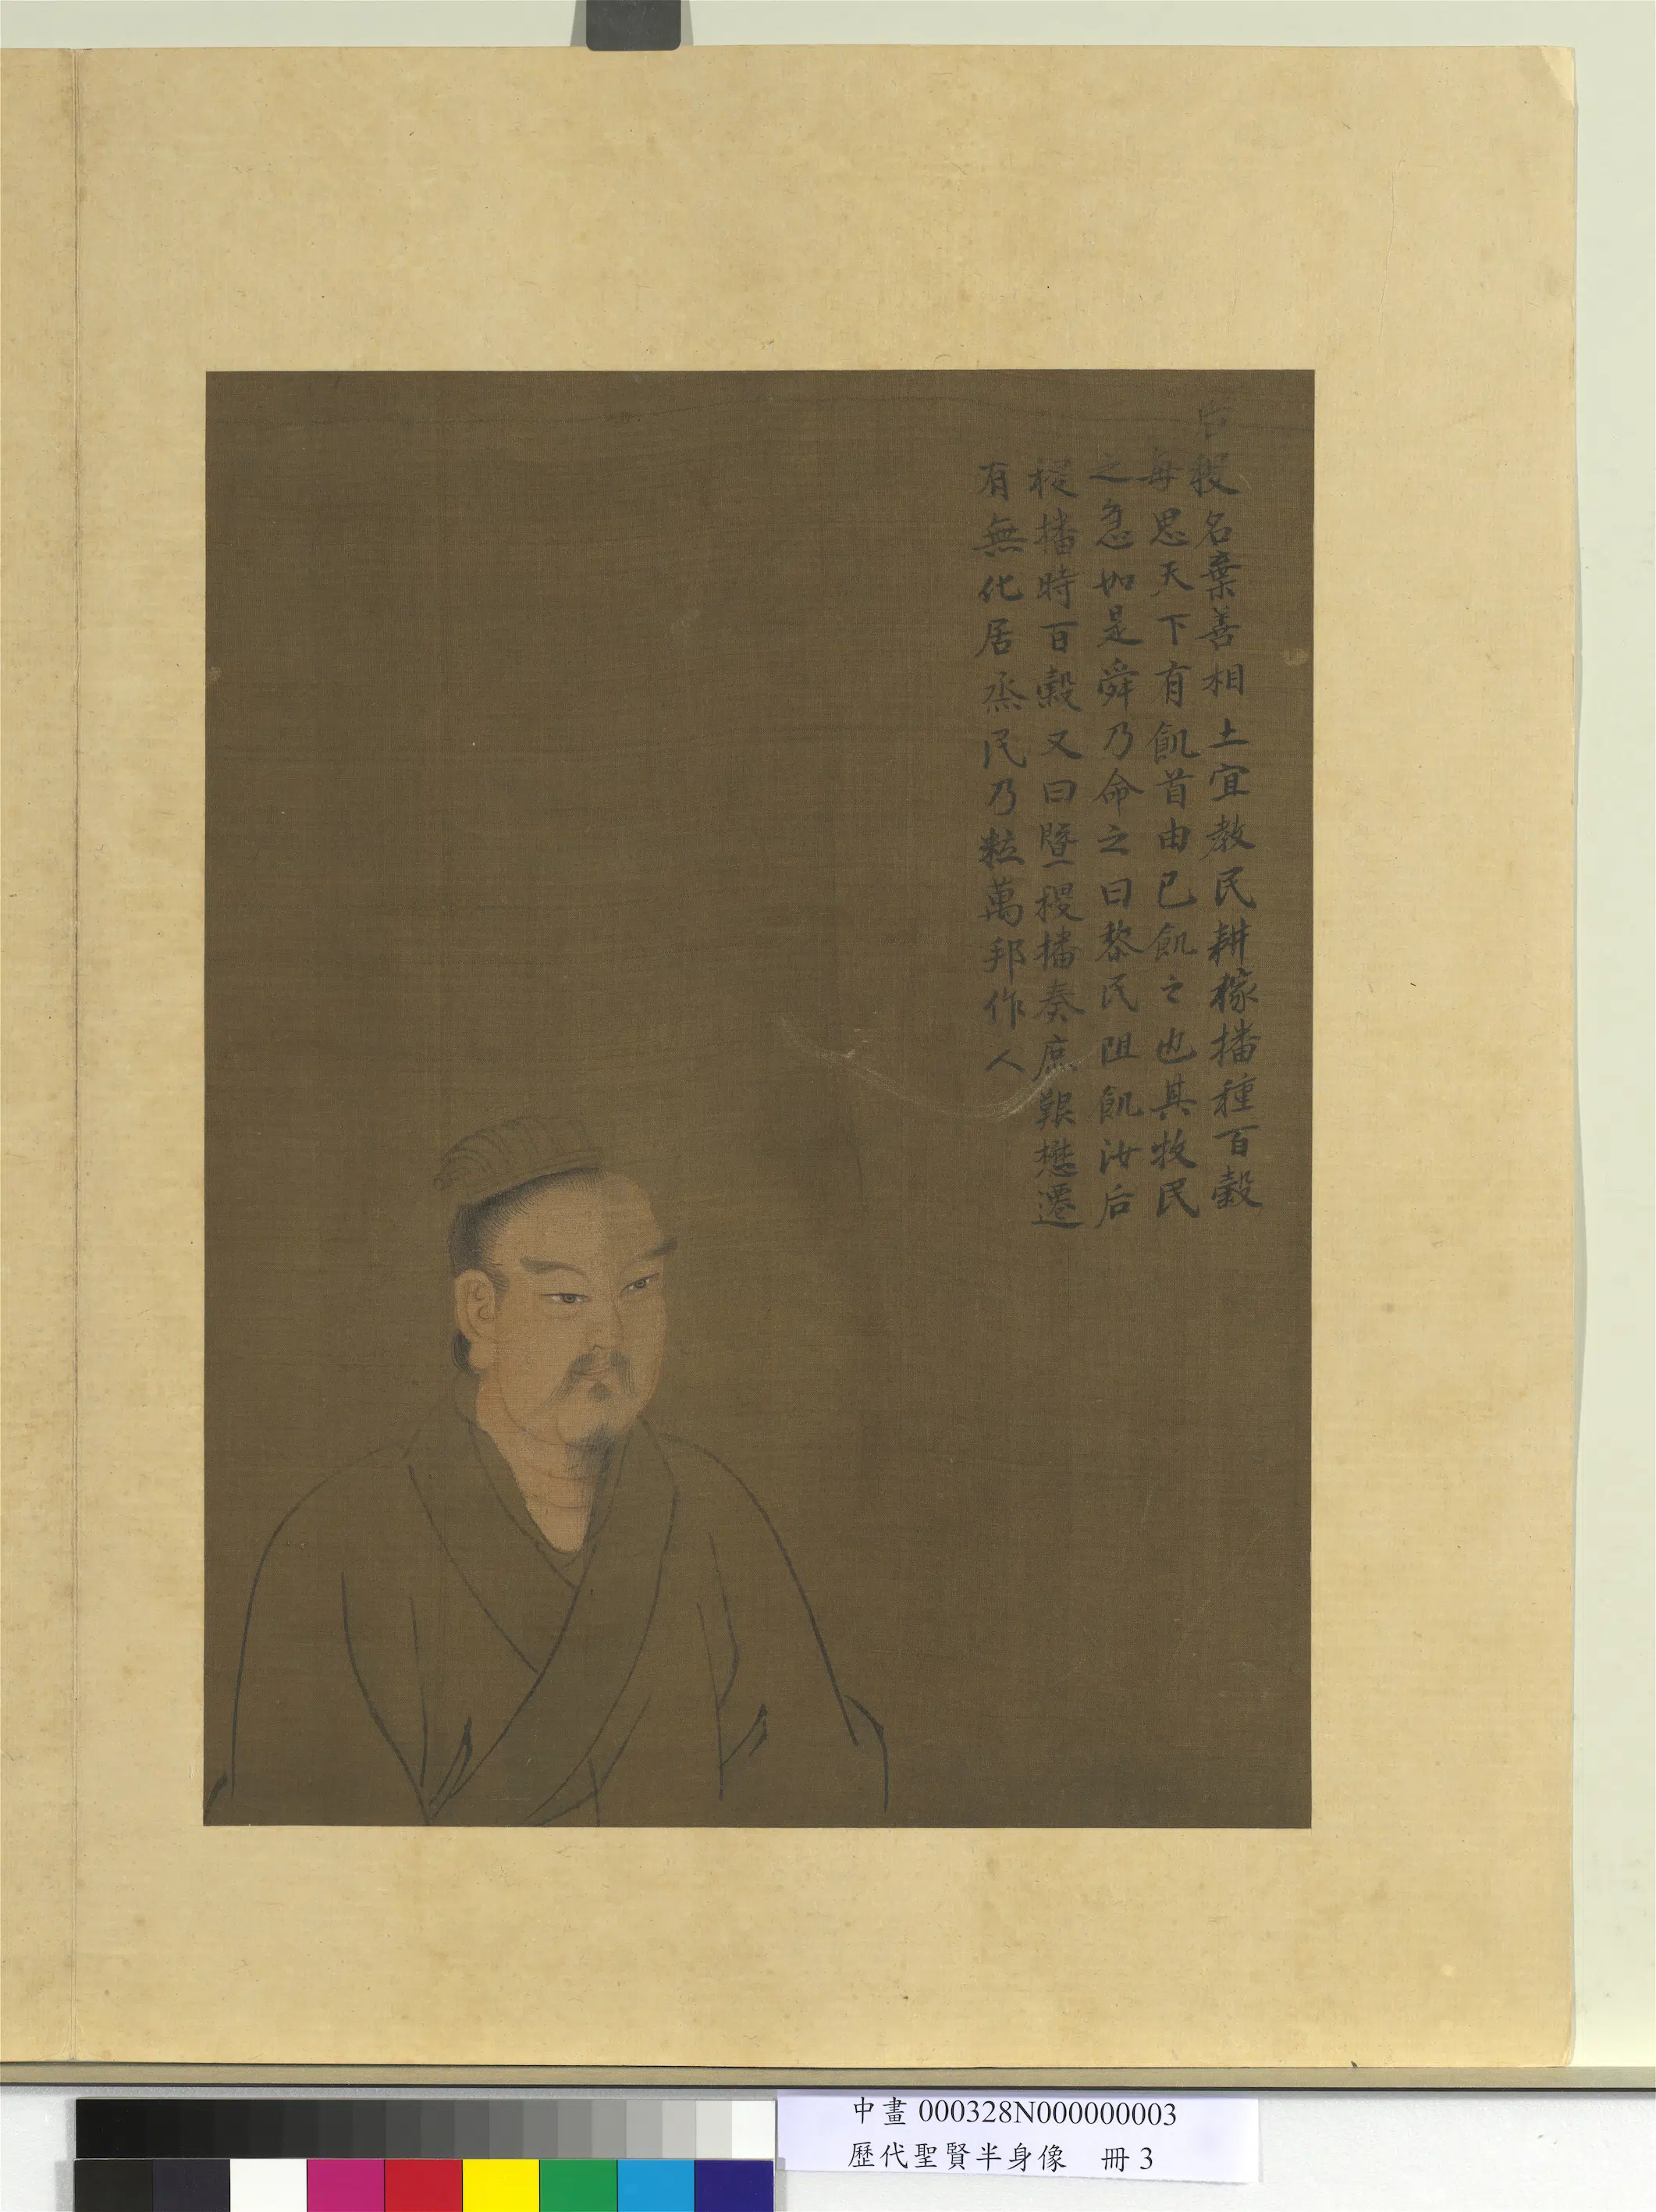 后稷名棄善相土宜教民耕稼播種百穀
每思天下有飢首由已飢之也其牧民
之急如是舜乃命之曰黎民阻飢汝后
稷播時百穀又曰暨稷播奏庶艱懋遷
有無化居烝民乃粒萬邦作人
中畫000328N000000003
歷代聖賢半身像 冊3